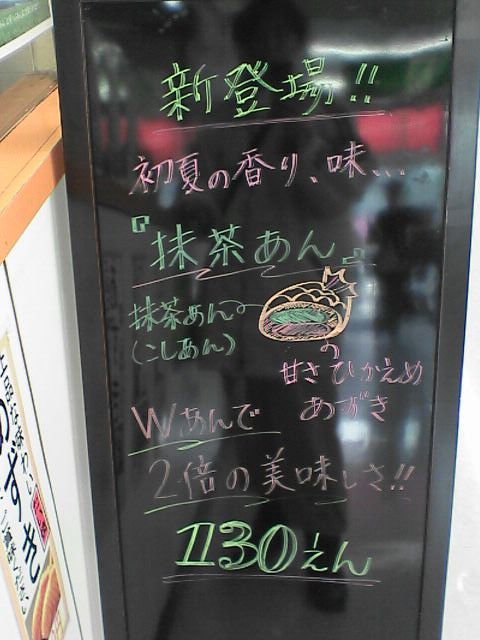 新登場!!
初夏の香り、味...
『抹茶あん』
抹茶あん
(こしあん)
甘さひかえめ
あずき
Wあんで
2倍の美味しさ!!
130えん